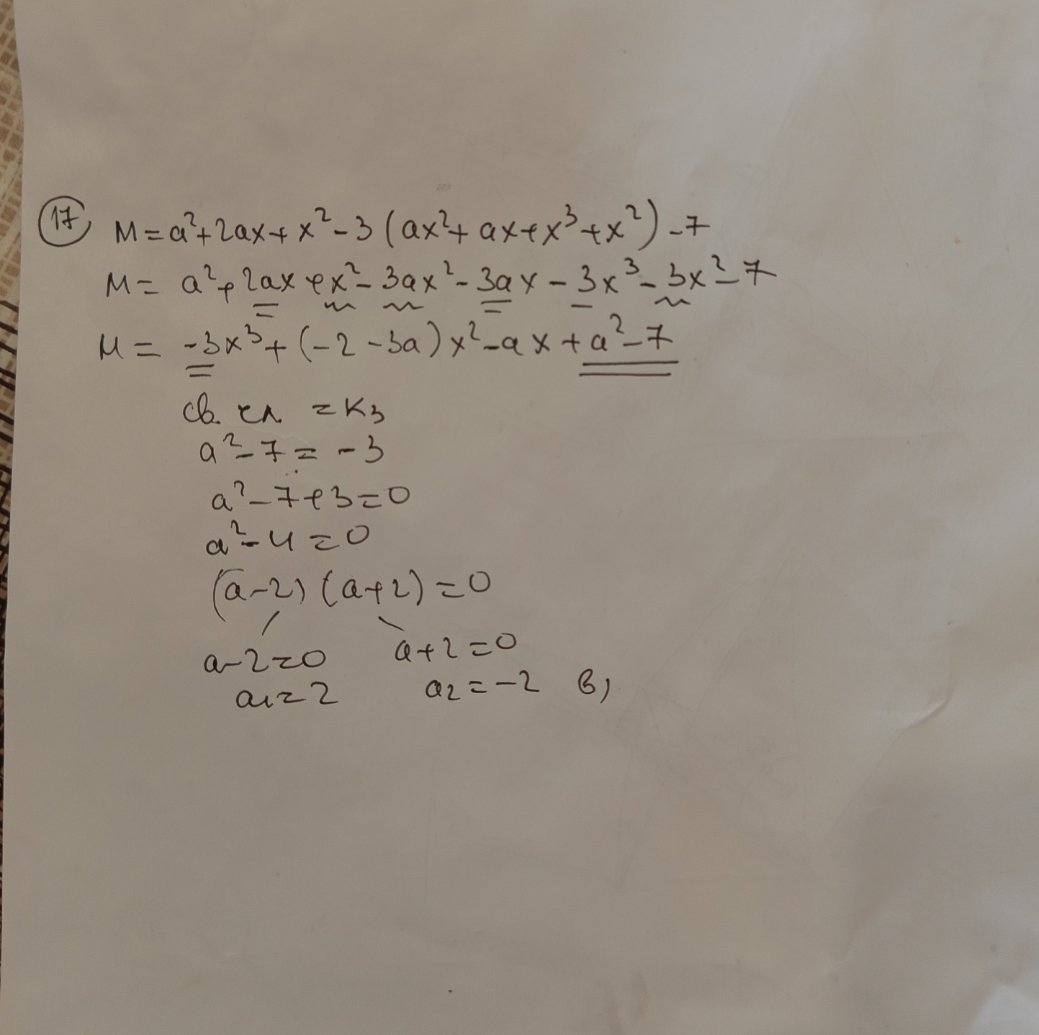 17 M=a²+2ax+x²-3(ax²+ax+x³+x²)-7
M= a²+2ax+x²-3ax²-3ax-3x³-3x²-7
M= -3x³+(-2-3a)x²-ax+a²-7
св. чл = K3
a²-7=-3
a²-7+3=0
a²-4=0
(a-2)(a+2)=0
a-2=0 a+2=0
a1=2 a2=-2 в)